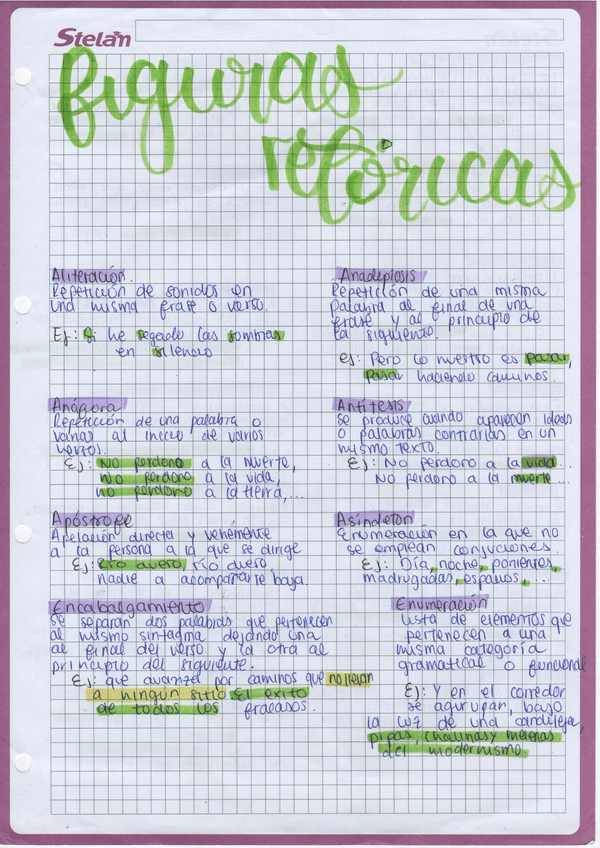 Stelan
figuras
retóricas
Aliteración.
Repetición de sonidos en
una misma frase o verso.
Ej: Si he segado las sombras
en silencio
Anadiplosis
Repetición de una misma
palabra al final de una
frase y al principio de
la siguiente.
ej: Pero lo nuestro es pasar,
pasar haciendo caminos.
Anáfora
Repetición de una palabra o
varias al inicio de varios
versos.
Ej: No perdono a la muerte,
no perdono a la vida,
no perdono a la tierra,...
Antítesis
Se produce cuando aparecen ideas
o palabras contrarias en un
mismo texto.
Ej: No perdono a la vida...
No perdono a la muerte...
Apóstrofe
Apelación directa y vehemente
a la persona a la que se dirige
Ej: Río duero, río duero,
nadie a acompañarte baja
Asíndeton
Enumeración en la que no
se emplean conjuciones.
Ej: Día, noche, ponientes,
madrugadas, espacios,...
Encabalgamiento
Se separan dos palabras que pertenecen
al mismo sintagma dejando una
al final del verso y la otra al
principio del siguiente.
Ej: que avanza por caminos que no llevan
a ningún sitio El éxito
de todos los fracasos.
Enumeración
Lista de elementos que
pertenecen a una
misma categoría
gramatical o funcional
Ej: Y en el corredor
se agrupan, bajo
la luz de una candileja,
pipas, chalinas y melenas
del modernismo